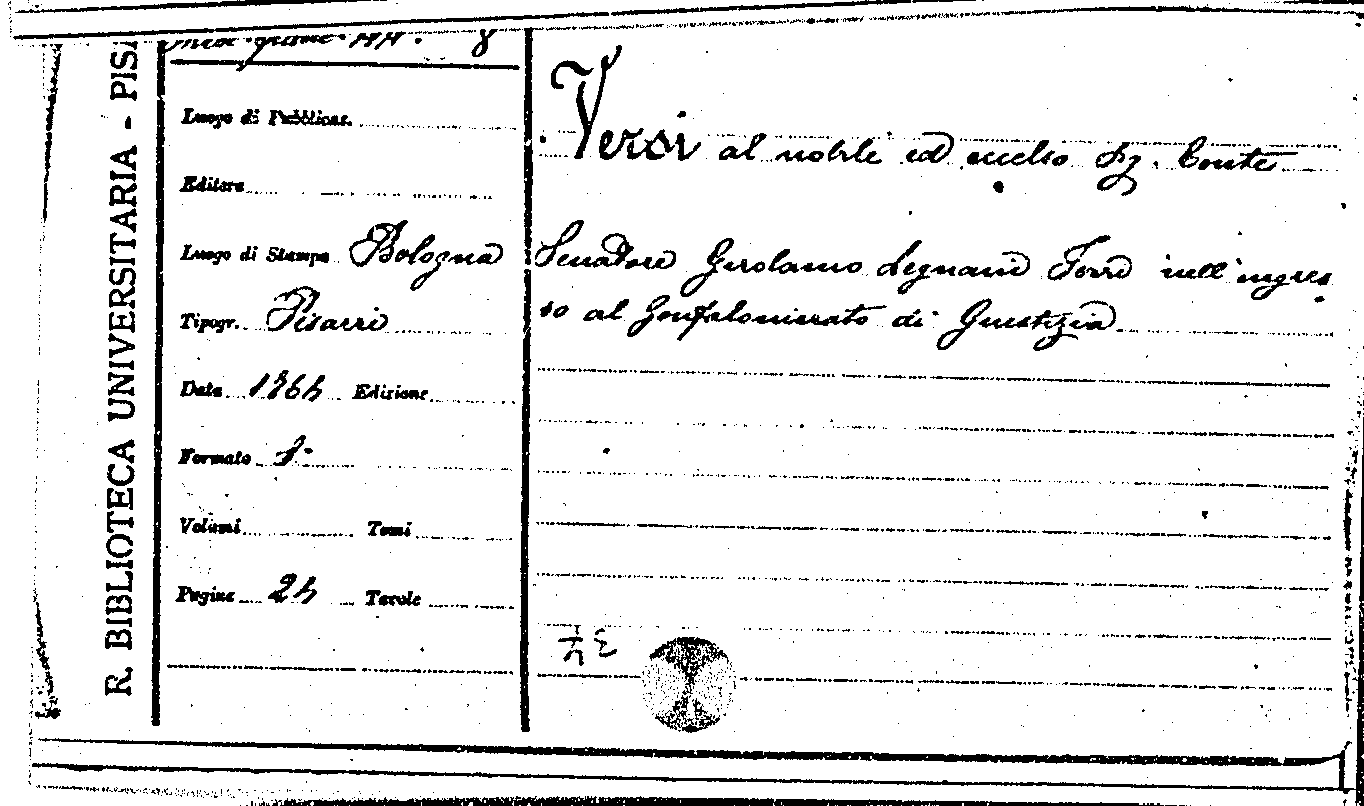 R. BIBLIOTECA UNIVERSITARIA - PISA
Misc. 8
Luogo di Pubblicaz.
Editore
Luogo di Stampa Bologna
Tipogr. Pisarri
Data 1764 Edizione
Formato 8°
Volumi Tomi
Pagine 24 Tavole
Versi al nobile ed eccelso Sig. Conte
Senatore Girolamo Legnani Ferri nell'ingres
so al Gonfalonierato di Giustizia